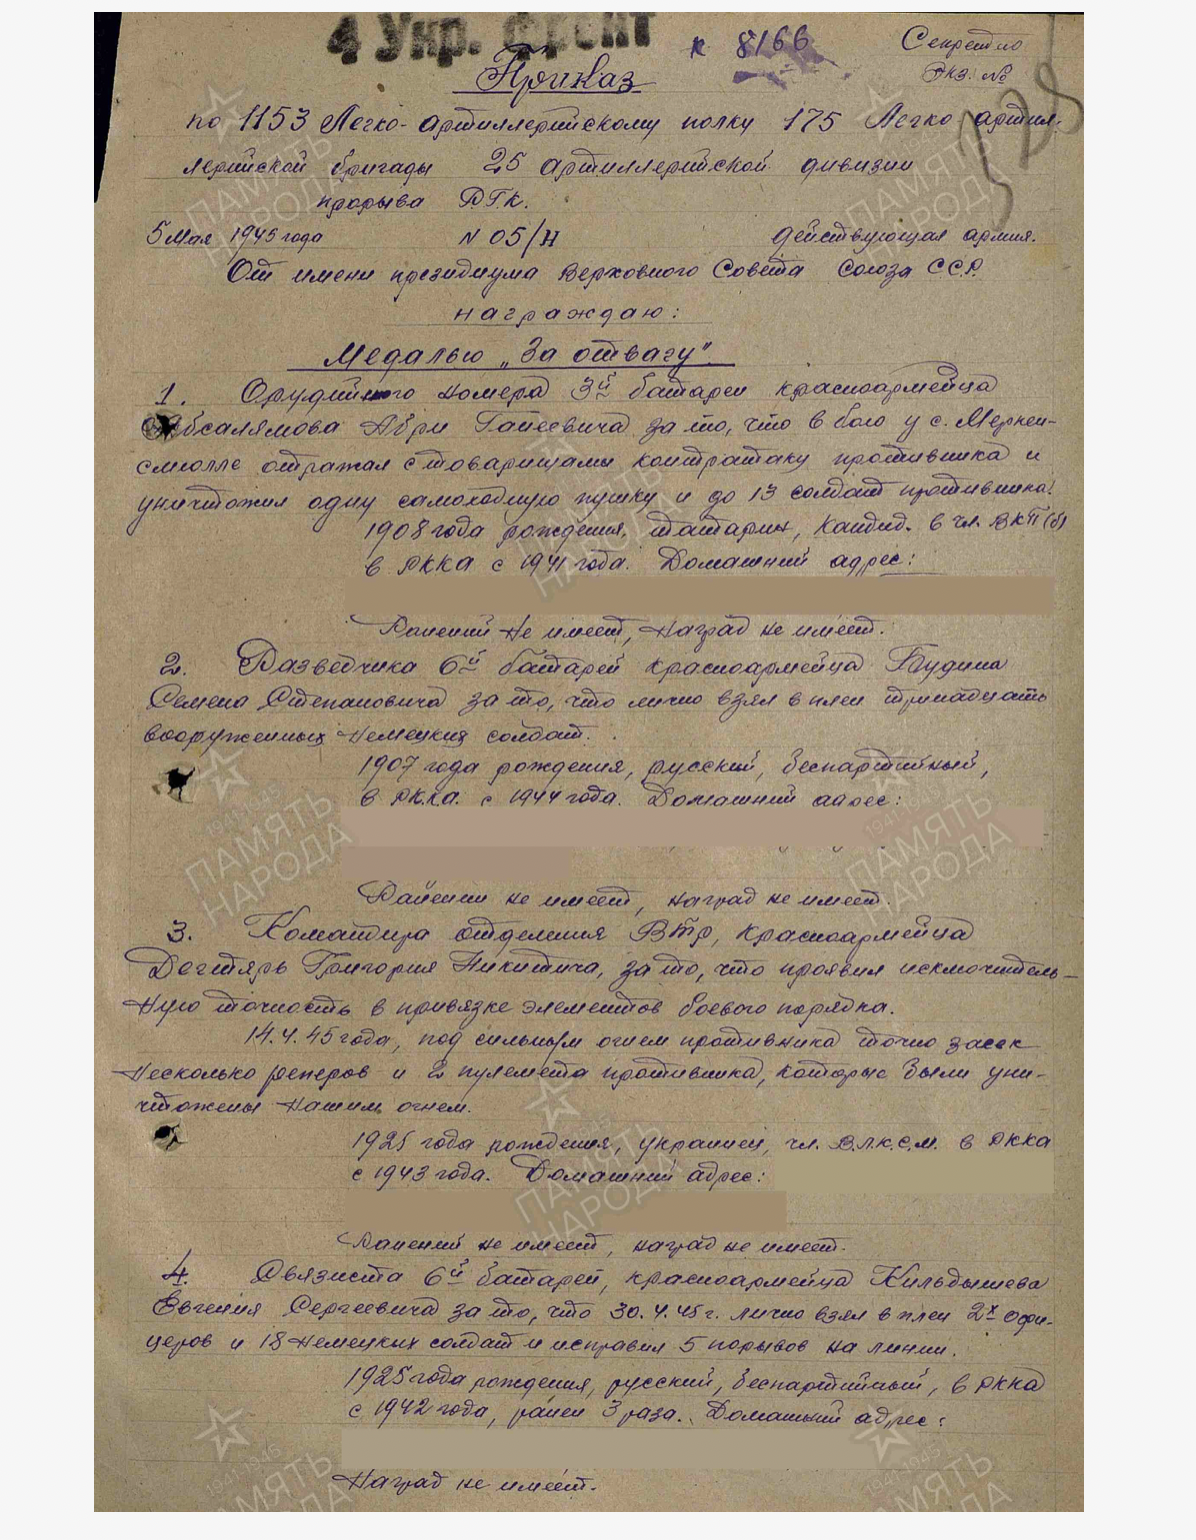 4 Укр. фронт
к 8166
Секретно
Экз. №
Приказ
по 1153 Легко-артиллерийскому полку 175 Легко артил-
лерийской бригады 25 артиллерийской дивизии
прорыва РГК.
5 Мая 1945 года N 05/н Действующая армия.
От имени президиума Верховного Совета Союза ССР
награждаю:
Медалью „За отвагу".
1. Орудийного номера 3й батареи красноармейца
Абсалямова Абри Гапеевича за то, что в бою у с.
отражая с товарищами контратаку противника и
уничтожил одну самоходную пушку и до 13 солдат противника.
1908 года рождения, татарин, кандид. в чл. ВКП(б)
в РККА с 1941 года. Домашний адрес:
Ранений не имеет, наград не имеет.
2. Разведчика 6й батарей красноармейца Гаудина
Семена Степановича за то, что лично взял в плен тринадцать
вооруженных немецких солдат.
1907 года рождения, русский, беспартийный,
в РККА с 1944 года. Домашний адрес:
Ранении не имеет, наград не имеет.
3. Командира отделения ВТр, красноармейца
Дегтярь Григория Никитича, за то, что проявил исключитель-
ную точность в привязке элементов боевого порядка.
14.4.45 года, под сильным огнем противника точно засек
несколько реперов и 2 пулемета противника, которые были уни-
чтожены нашим огнем.
1925 года рождения, украинец, чл. ВЛКСМ. в РККА
с 1943 года. Домашний адрес:
Ранений не имеет, наград не имеет.
4. Связиста 6й батарей, красноармейца Кильдышева
Евгения Сергеевича за то, что 30.4.45 г. лично взял в плен 2х офи-
церов и 18 немецких солдат и исправил 5 порывов на линии.
1925 года рождения, русский, беспартийный, в РККА
с 1942 года, ранен 3 раза. Домашний адрес:
Наград не имеет.